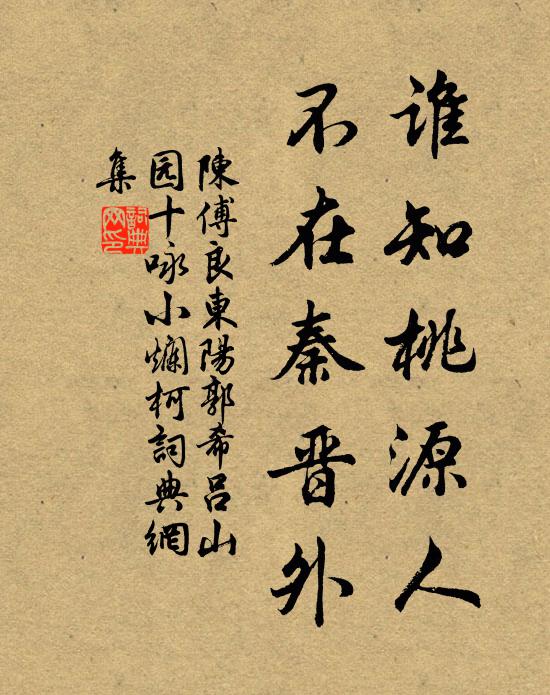 谁知桃源人
不在秦晋外
陳傅良東陽郭希吕山
园十咏小爛柯詞典網
集
詞典网印